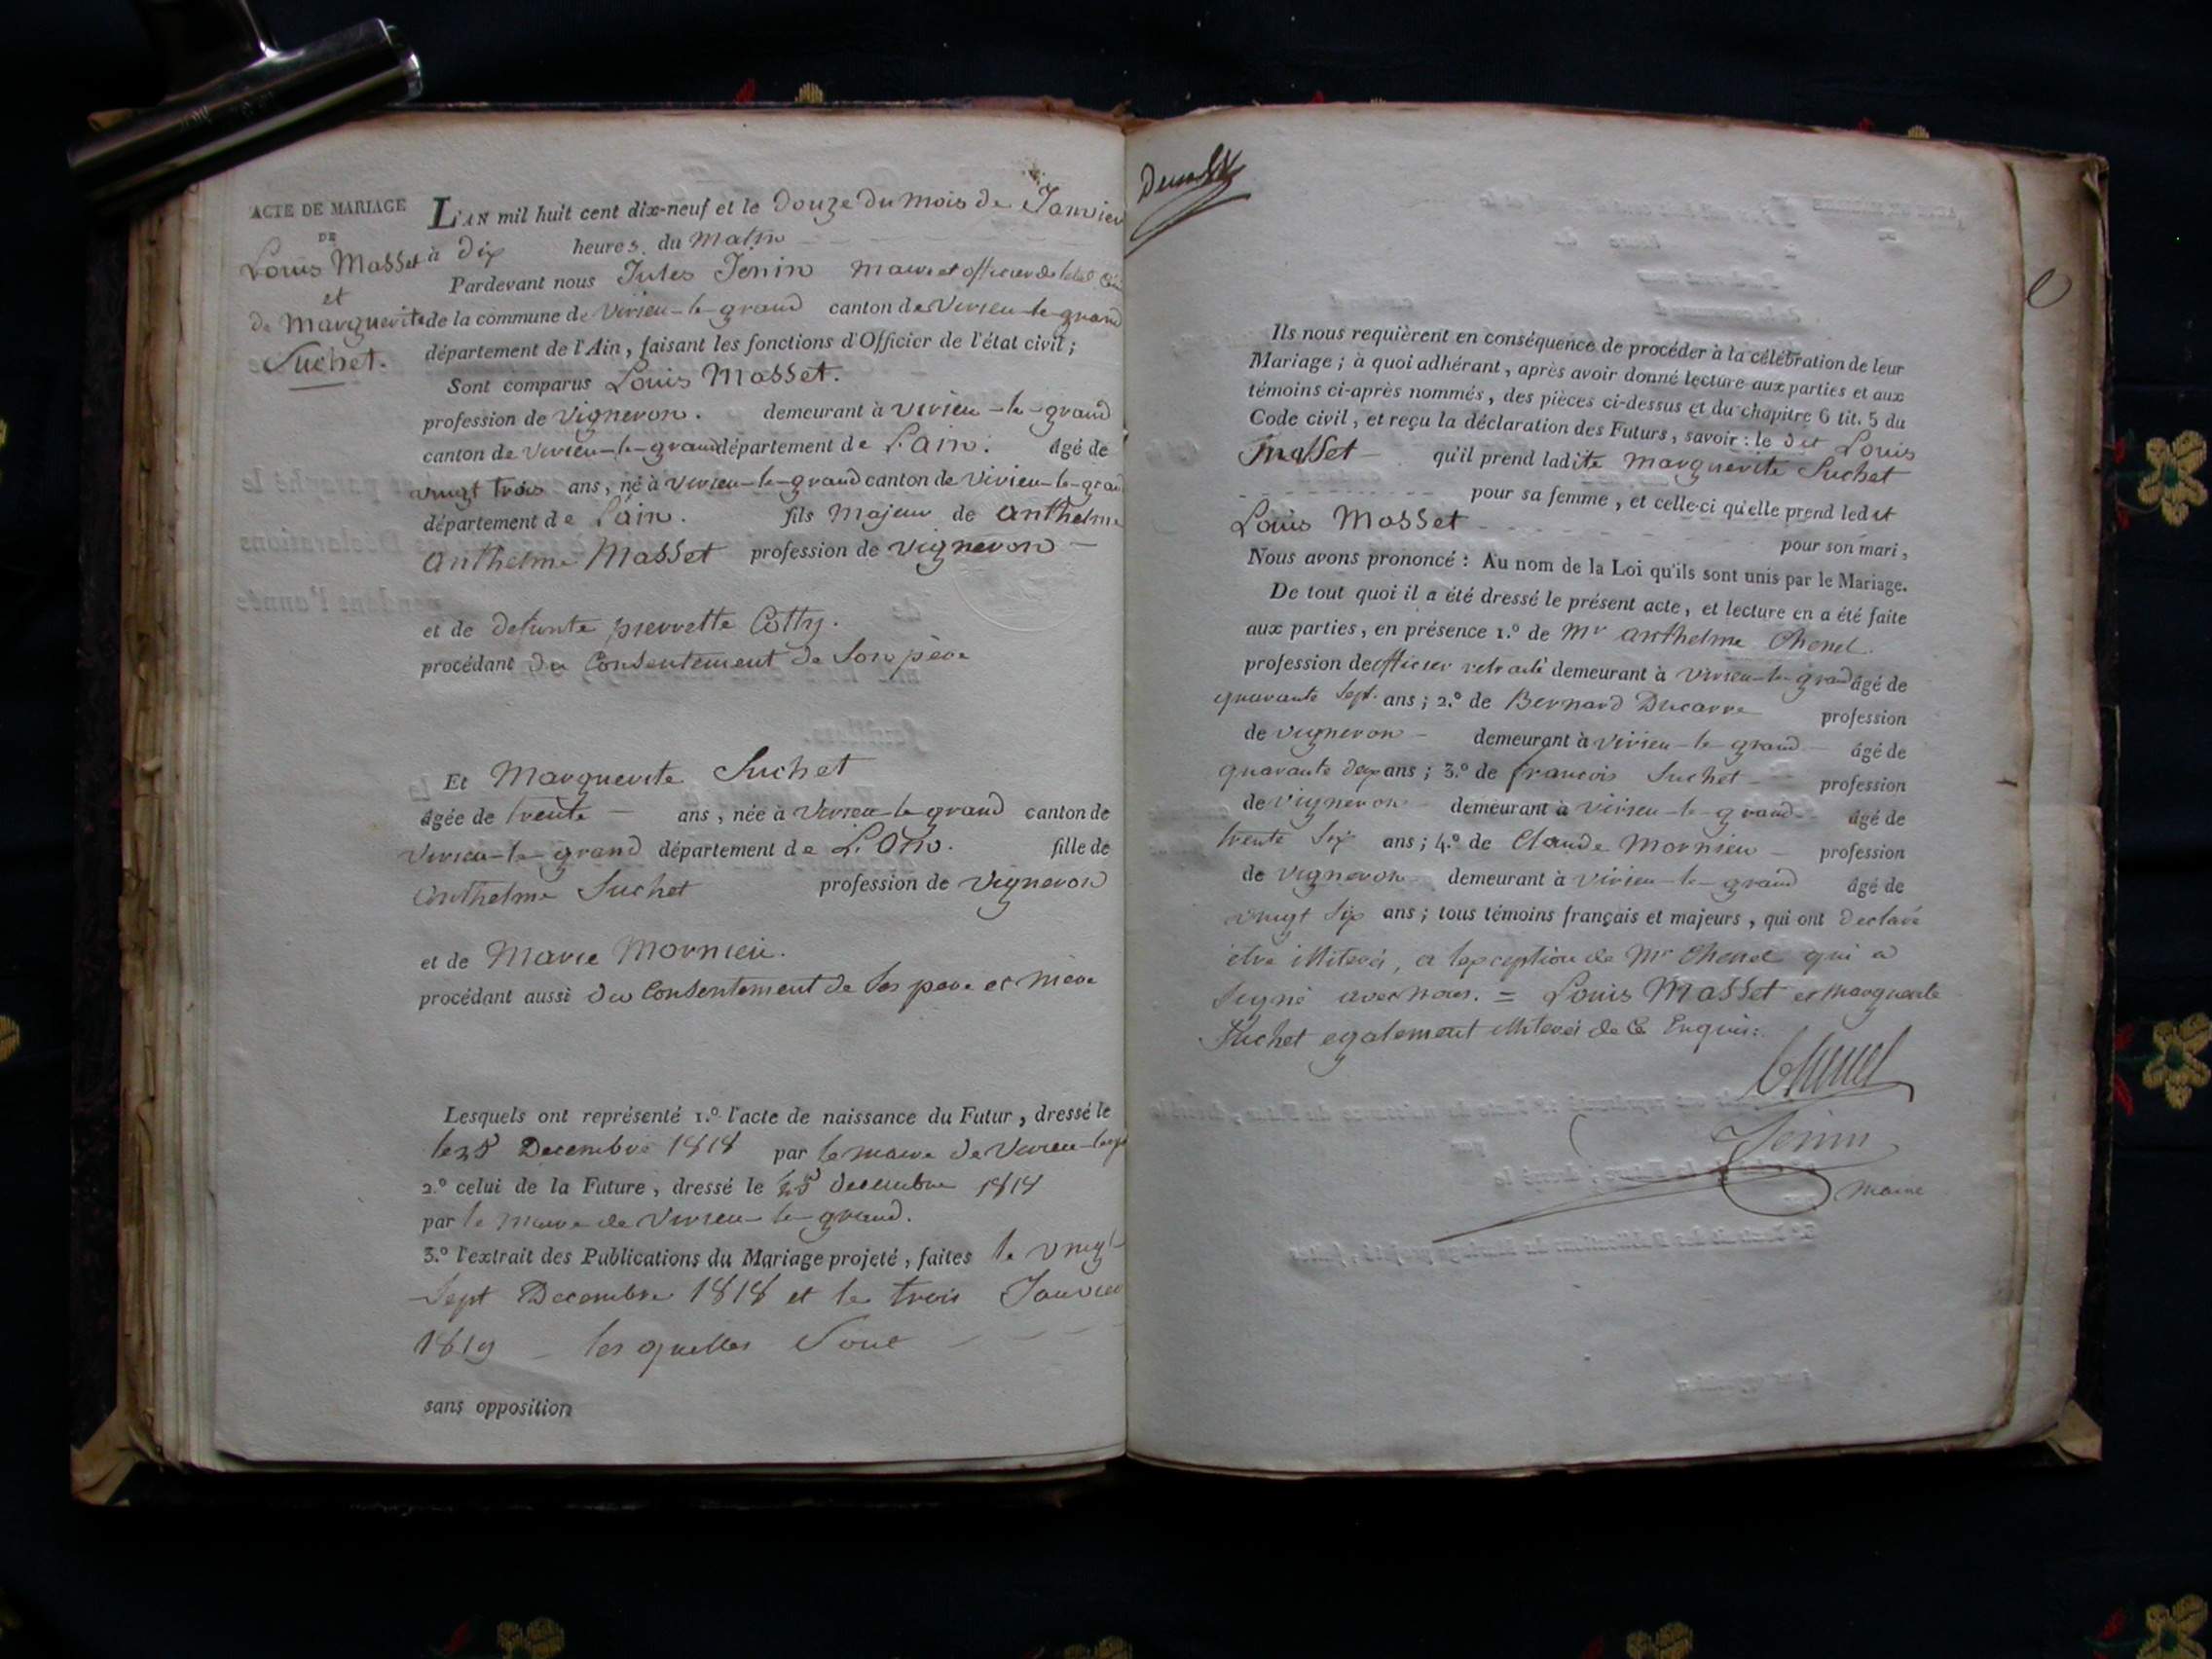 ACTE DE MARIAGE
DE
Louis Masset
et
de Marguerite
Suchet.
L'AN mil huit cent dix-neuf et le Douze du mois de Janvier
à dix heures du Matin
Pardevant nous Jules Jenin maire et officier de l'etat Civil
de la commune de Virieu-le-grand canton de Virieu-le-grand
département de l'Ain, faisant les fonctions d'Officier de l'état civil;
Sont comparus Louis Masset.
profession de vigneron. demeurant à virieu-le-grand
canton de virieu-le-grand département de L'ain. âgé de
vingt trois ans, né à virieu-le-grand canton de virieu-le-grand
département de L'ain. fils Majeur de anthelme
anthelme Masset profession de vigneron
et de defunte pierrette Cotty.
procédant du Consentement de son père
Et Marguerite Suchet
âgée de trente ans, née à virieu-le-grand canton de
virieu-le-grand département de L'ain. fille de
Anthelme Suchet profession de vigneron
et de Marie Mornieu.
procédant aussi du Consentement de ses pere et mere
Lesquels ont représenté 1.º l'acte de naissance du Futur, dressé le
Decembre 1818 par le maire de Virieu-le-
2.º celui de la Future, dressé le decembre 1818
par le maire de Virieu-le-grand.
3.º l'extrait des Publications du Mariage projeté, faites le vingt
sept Decembre 1818 et le trois Janvier
1819 les quelles Sont
sans opposition
Ils nous requièrent en conséquence de procéder à la célébration de leur
Mariage; à quoi adhérant, après avoir donné lecture aux parties et aux
témoins ci-après nommés, des pièces ci-dessus et du chapitre 6 tit. 5 du
Code civil, et reçu la déclaration des Futurs, savoir: le dit Louis
Masset qu'il prend ladite Marguerite Suchet
pour sa femme, et celle-ci qu'elle prend ledit
Louis Masset
pour son mari,
Nous avons prononcé: Au nom de la Loi qu'ils sont unis par le Mariage.
De tout quoi il a été dressé le présent acte, et lecture en a été faite
aux parties, en présence 1.º de Mr anthelme Chenel.
profession de officier retraité demeurant à virieu-le-grand âgé de
quarante sept. ans; 2.º de Bernard Ducarre profession
de vigneron demeurant à virieu-le-grand âgé de
quarante ans; 3.º de françois Suchet profession
de vigneron demeurant à virieu-le-grand âgé de
trente six ans; 4.º de Claude Mornieu profession
de vigneron demeurant à virieu-le-grand âgé de
vingt six ans; tous témoins français et majeurs, qui ont declaré
être illiterés, a lexception de Mr Chenel qui a
signé avec nous. = Louis Masset et Marguerite
Suchet egalement illiterés de ce Enquis.
Chenel
Jenin
maire